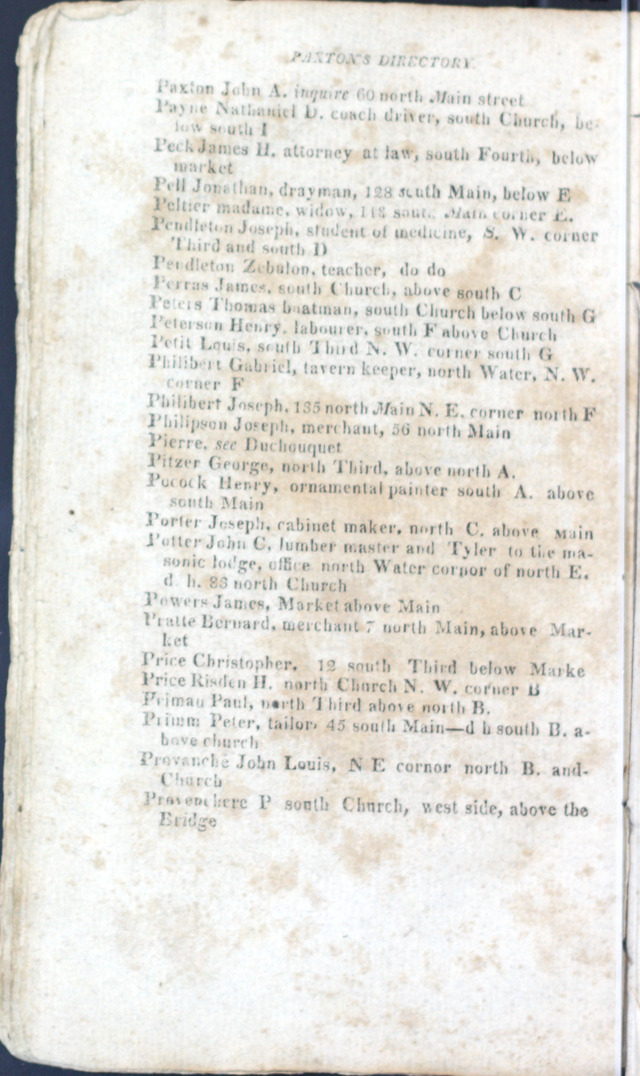 PAXTON'S DIRECTORY.
Paxton John A. inquire 60 north Main street
Payne Nathaniel D. coach driver, south Church, be-
low south I
Peck James H. attorney at law, south Fourth, below
market
Pell Jonathan, drayman, 128 south Main, below E
Peltier madame, widow, south Main corner E.
Pendleton Joseph, student of medicine, S. W. corner
Third and south D
Pendleton Zebulon, teacher, do do
Perras James, south Church, above south C
Peters Thomas boatman, south Church below south G
Peterson Henry, labourer, south F above Church
Petit Louis, south Third N. W. corner south G
Philibert Gabriel, tavern keeper, north Water, N. W.
corner F
Philibert Joseph, 135 north Main N. E. corner north F
Philipson Joseph, merchant, 56 north Main
Pierre, see Duchouquet
Pitzer George, north Third, above north A.
Pocock Henry, ornamental painter south A. above
south Main
Porter Joseph, cabinet maker, north C. above Main
Potter John C, lumber master and Tyler to the ma-
sonic lodge, office north Water cornor of north E.
d h. 86 north Church
Powers James, Market above Main
Pratte Bernard, merchant 7 north Main, above Mar-
ket
Price Christopher, 12 south Third below Marke
Price Risden H. north Church N. W. corner B
Primau Paul, north Third above north B.
Primm Peter, tailor, 45 south Main—d h south B. a-
bove church
Provanché John Louis, N E cornor north B. and-
Church
Provenchere P south Church, west side, above the
Bridge